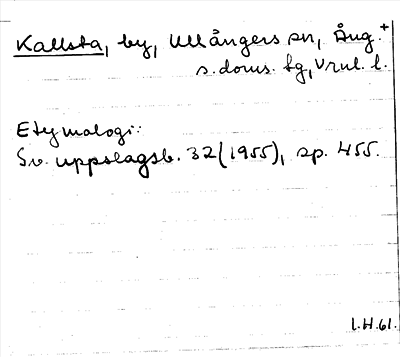 Kallsta, by, Ullångers sn, Ång.+
s. doms. tg, Vnrl. l.
Etymologi:
Sv. uppslagsb. 32 (1955), sp. 455.
l.H.61.